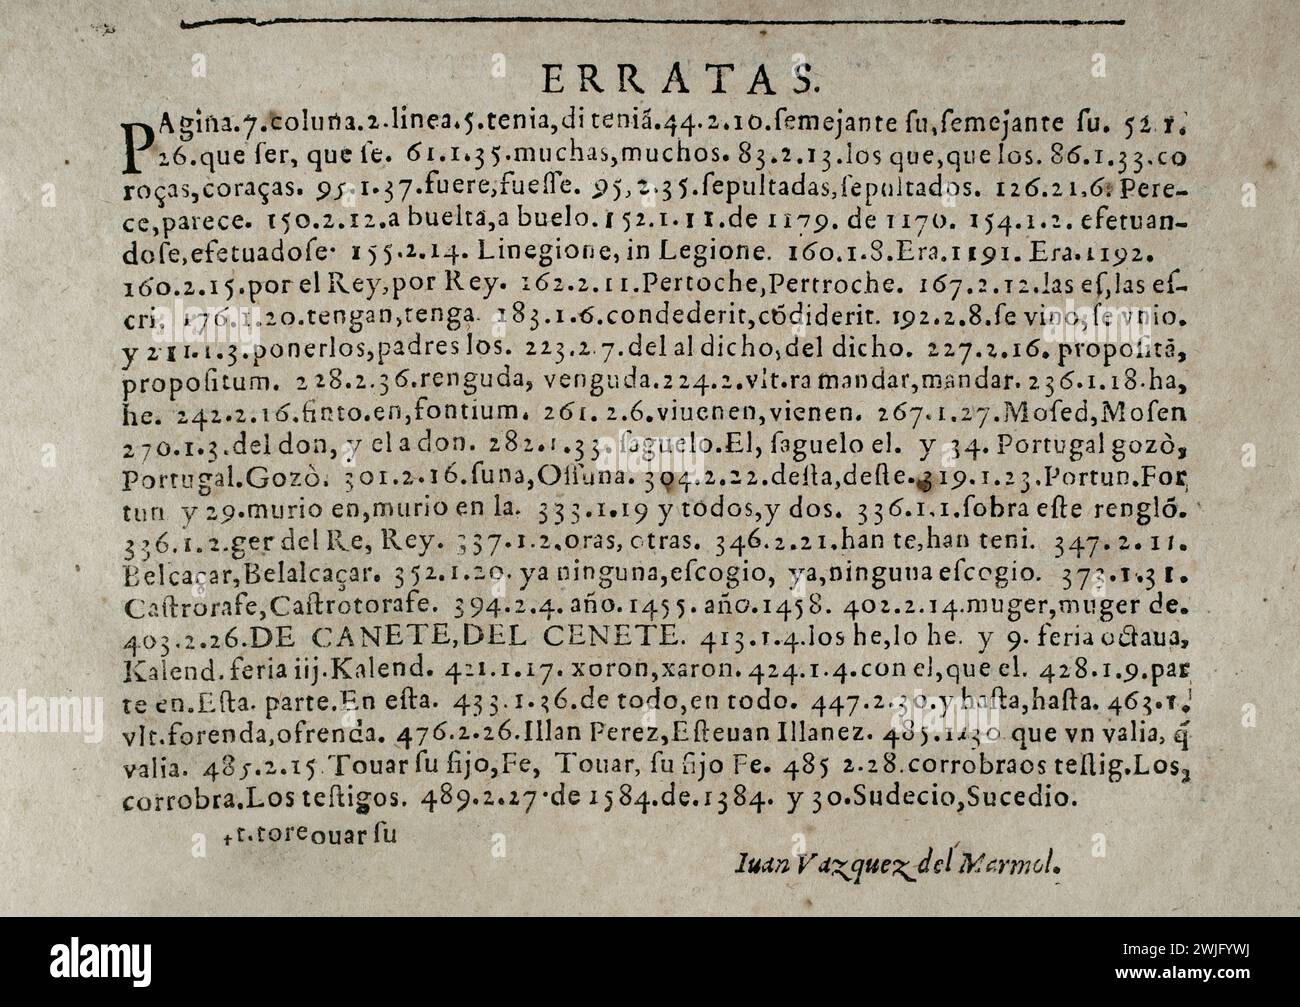 ERRATAS.
PAgina.7.coluna.2.linea.5.tenia,di teniã.44.2.10.ſemejante ſu,ſemejante ſu. 52.1.
26.que ſer, que ſe. 61.1.35.muchas,muchos. 83.2.13.los que,que los. 86.1.33.co
roças,coraças. 95.1.37.fuere,fueſſe. 95,2.35.ſepultadas,ſepultados. 126.21,6. Pere-
ce,parece. 150.2.12.a buelta,a buelo.152.1.11.de 1179. de 1170. 154.1.2. efetuan-
doſe,efetuadoſe. 155.2.14. Linegione,in Legione. 160.1.8.Era.1191. Era.1192.
160.2.15.por el Rey,por Rey. 162.2.11.Pertoche,Pertroche. 167.2.12.las eſ,las eſ-
cri. 176.1.20.tengan,tenga. 183.1.6.condederit,cõdiderit. 192.2.8.ſe vino,ſe vnio.
y 211.1.3.ponerlos,padres los. 223.2.7.del al dicho,del dicho. 227.2.16. propoſitã,
propoſitum. 228.2.36.renguda, venguda.224.2.vlt.ra mandar,mandar. 236.1.18.ha,
he. 242.2.16.finto.en,fontium. 261. 2.6.viuenen,vienen. 267.1.27.Moſed,Moſen
270.1.3.del don, y el a don. 282.1.33. ſaguelo.El, ſaguelo el. y 34. Portugal gozò,
Portugal.Gozò. 301.2.16.ſuna,Oſſuna. 304.2.22.deſta,deſte.319.1.23.Portun.For
tun y 29.murio en,murio en la. 333.1.19 y todos,y dos. 336.1.1.ſobra eſte renglõ.
336.1.2.ger del Re, Rey. 337.1.2.oras, otras. 346.2.21.han te,han teni. 347.2.11.
Belcaçar,Belalcaçar. 352.1.20. ya ninguna,eſcogio, ya,ninguna eſcogio. 373.1.31.
Caſtrorafe,Caſtrotorafe. 394.2.4. año.1455. año.1458. 402.2.14.muger,muger de.
403.2.26.DE CANETE,DEL CENETE. 413.1.4.los he,lo he. y 9. feria octaua,
Kalend.feria iij.Kalend. 421.1.17. xoron,xaron. 424.1.4.con el,que el. 428.1.9.par
te en.Eſta. parte.En eſta. 433.1.36.de todo,en todo. 447.2.30.y haſta,haſta. 463.1.
vlt.forenda,ofrenda. 476.2.26.Illan Perez,Eſteuan Illanez. 485.1.130 que vn valia, q̃
valia. 485.2.15 Touar ſu ſijo,Fe, Touar, ſu ſijo Fe. 485 2.28.corrobraos teſtig.Los,
corrobra.Los teſtigos. 489.2.27.de 1584.de.1384. y 30.Sudecio,Sucedio.
ouar ſu
Iuan Vazquez del Marmol.
alamy
Image ID: 2WJFYWJ
www.alamy.com